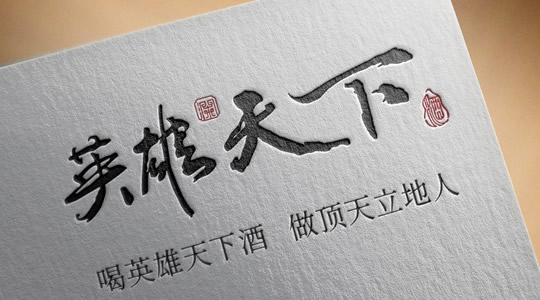 英雄天下
酒
喝英雄天下酒 做顶天立地人